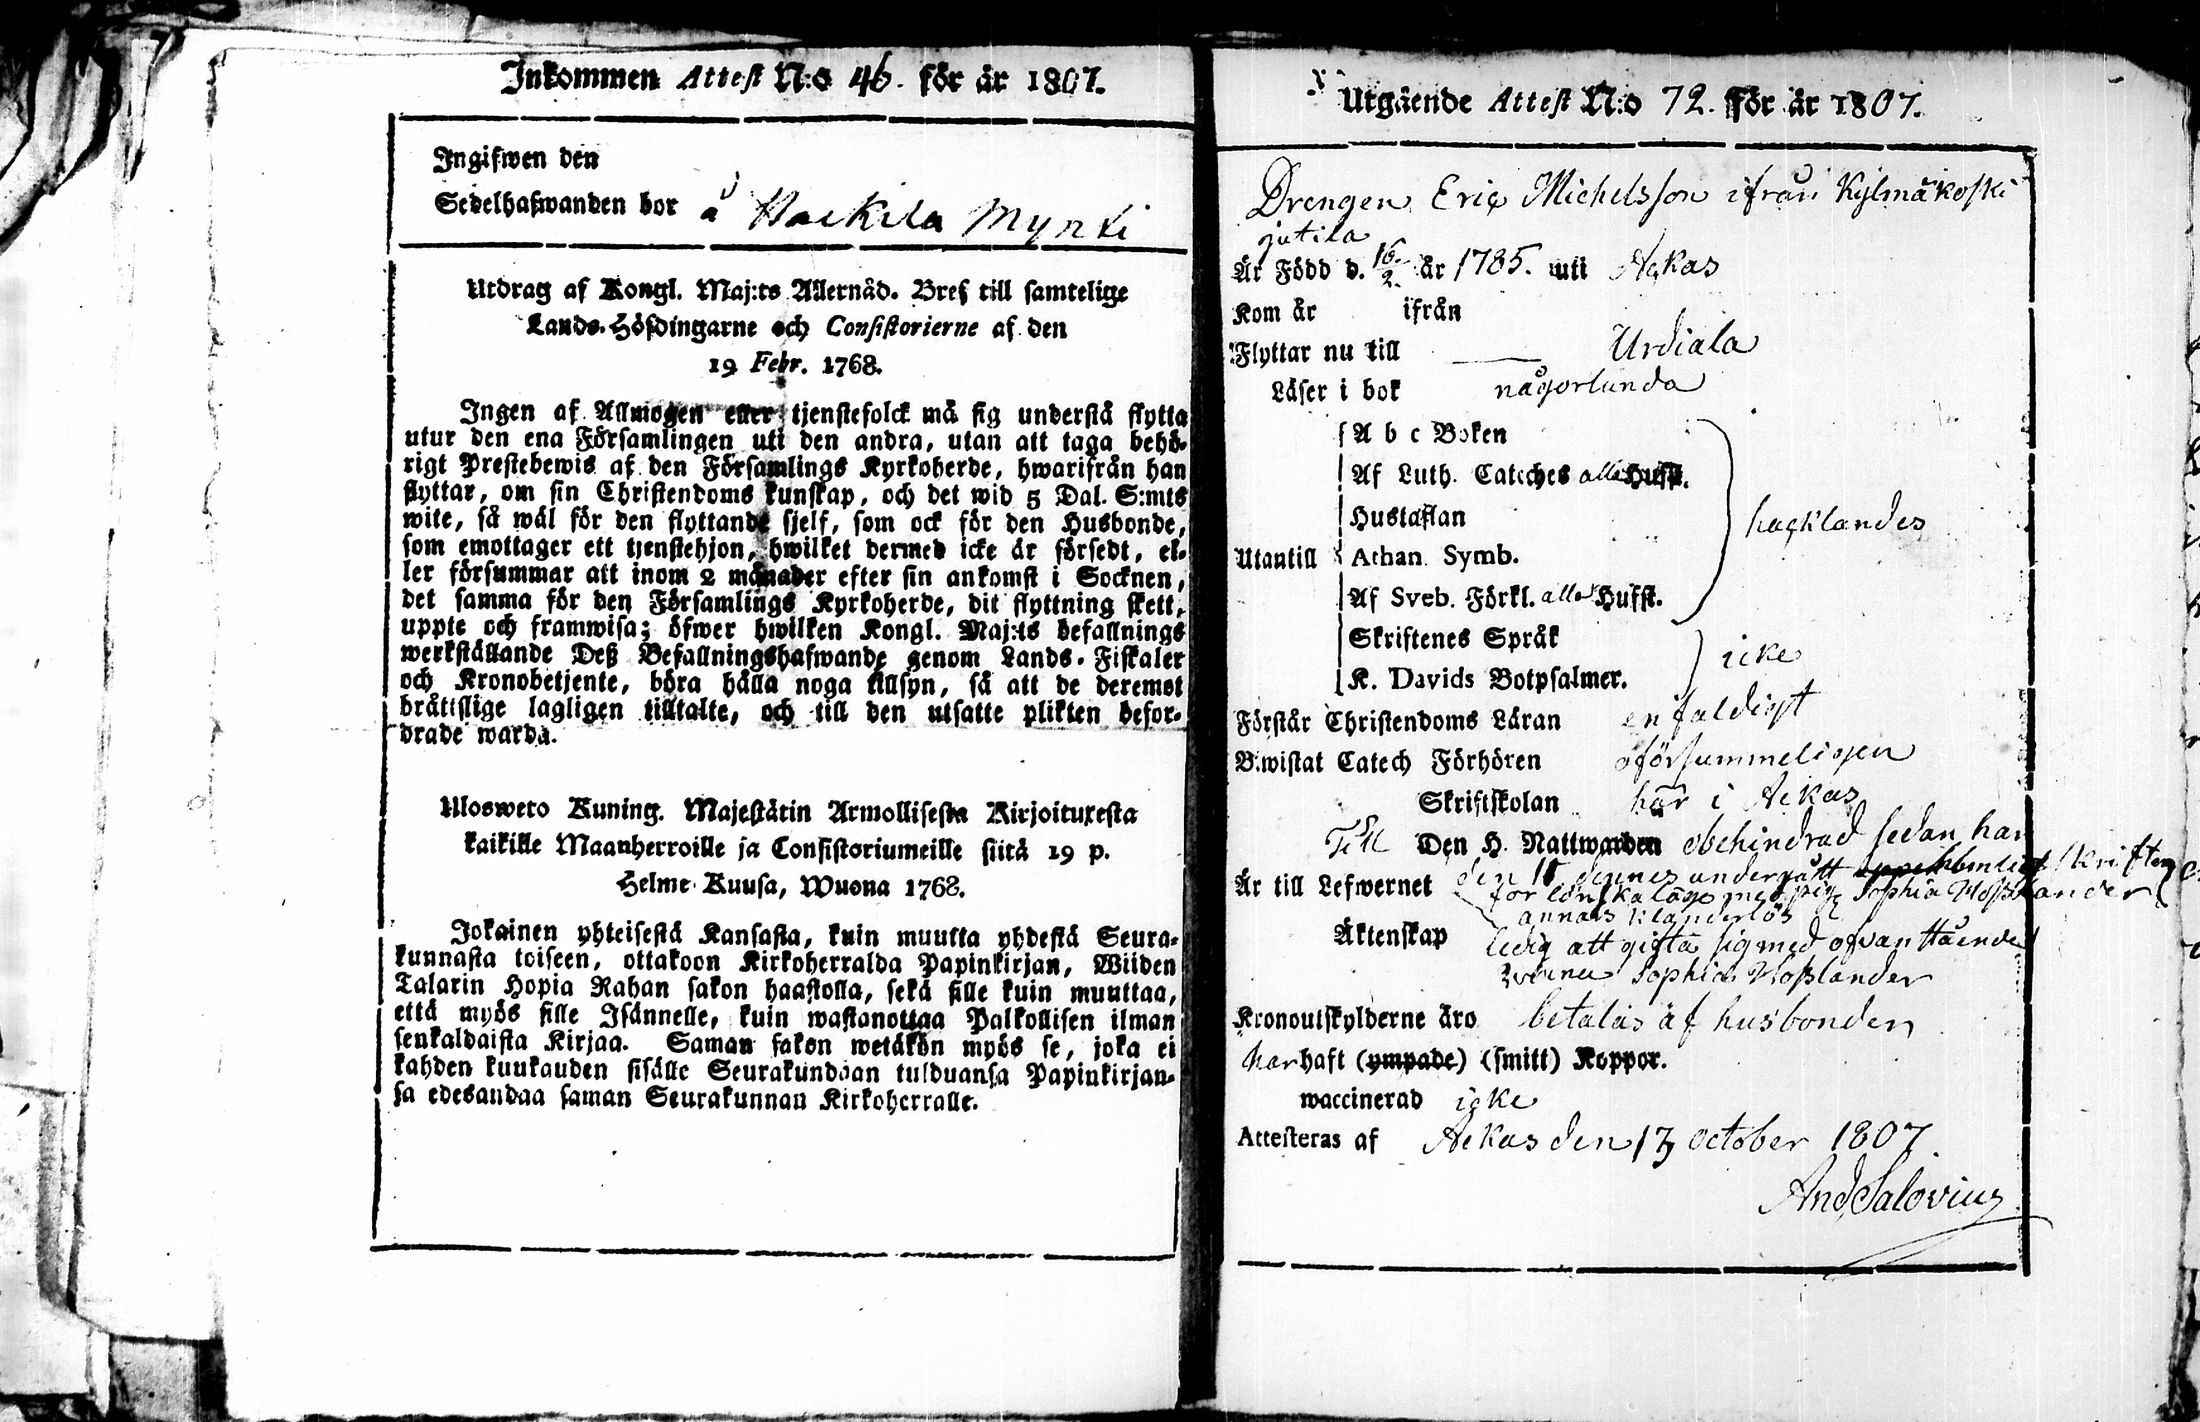 Inkommen Attest N:o 46. för år 1807.
Ingifwen den
Sedelhafwanden bor å Mynti
Utdrag af Kongl. Maj:ts Allernåd. Bref till samtelige
Lands-Höfdingarne och Consistorierne af den
19 Febr. 1768.
Ingen af Allmogen eller tjenstefolck må sig understå flytta
utur den ena Församlingen uti den andra, utan att taga behö-
rigt Prestebewis af den Församlings Kyrkoherde, hwarifrån han
flyttar, om sin Christendoms kunskap, och det wid 5 Dal. S:mts
wite, så wäl för den flyttande sjelf, som ock för den Husbonde,
som emottager ett tjenstehjon, hwilket dermed icke är försedt, el-
ler försummar att inom 2 månader efter sin ankomst i Socknen,
det samma för den Församlings Kyrkoherde, dit flyttning skett,
uppte och framwisa; öfwer hwilken Kongl. Maj:ts befallnings
werkställande Deß Befallningshafwande genom Lands-Fiskaler
och Kronobetjente, böra hålla noga tillsyn, så att de deremot
bråttslige lagligen tilltalte, och till den utsatte plikten befor-
drade warda.
Ulosweto Kuning. Majestätin Armollisesta Kirjoituxesta
kaikille Maanherroille ja Consistoriumeille siitä 19 p.
Helme-Kuusa, Wuona 1768.
Jokainen yhteisestä Kansasta, kuin muutta yhdestä Seura-
kunnasta toiseen, ottakoon Kirkoherralda Papinkirjan, Wiiden
Talarin Hopia Rahan sakon haastolla, sekä sille kuin muuttaa,
että myös sille Isännelle, kuin wastanottaa Palkollisen ilman
senkaldaista Kirjaa. Saman sakon wetäkön myös se, joka ei
kahden kuukauden sisälle Seurakundaan tulduansa Papinkirjan-
sa edesandaa saman Seurakunnan Kirkoherralle.
Utgående Attest N:o 72. för år 1807.
Drengen Eric Michelsson ifrån Kylmäkoski
jutila
Är Född d. 16/2 år 1785. uti Ackas
Kom år ifrån
Flyttar nu till Urdiala
Läser i bok någorlunda
A b c Boken
Af Luth. Cateches alla Hufst.
Hustaflan
hacklandes
Utantill Athan. Symb.
Af Sveb. Förkl. alla Hufst.
Skriftenes Språk
icke
K. Davids Botpsalmer.
Förstår Christendoms Läran enfaldigt
Bewistat Catech Förhören oförsummeligen
Skriftskolan här i Ackas
Till Den H. Nattwarden obehindrad sedan han
Är till Lefwernet den 11 dennes undergått skriften
för lönskaläge med pig. Sophia Mosslander
annars klanderlös
Äktenskap ledig att gifta sig med ofvanstående
Sophia Mosslander
Kronoutskylderne äro betalas af husbonden
har haft (ympade) (smitt) Koppor.
waccinerad icke
Attesteras af Ackas den 13 october 1807
And. Salovius